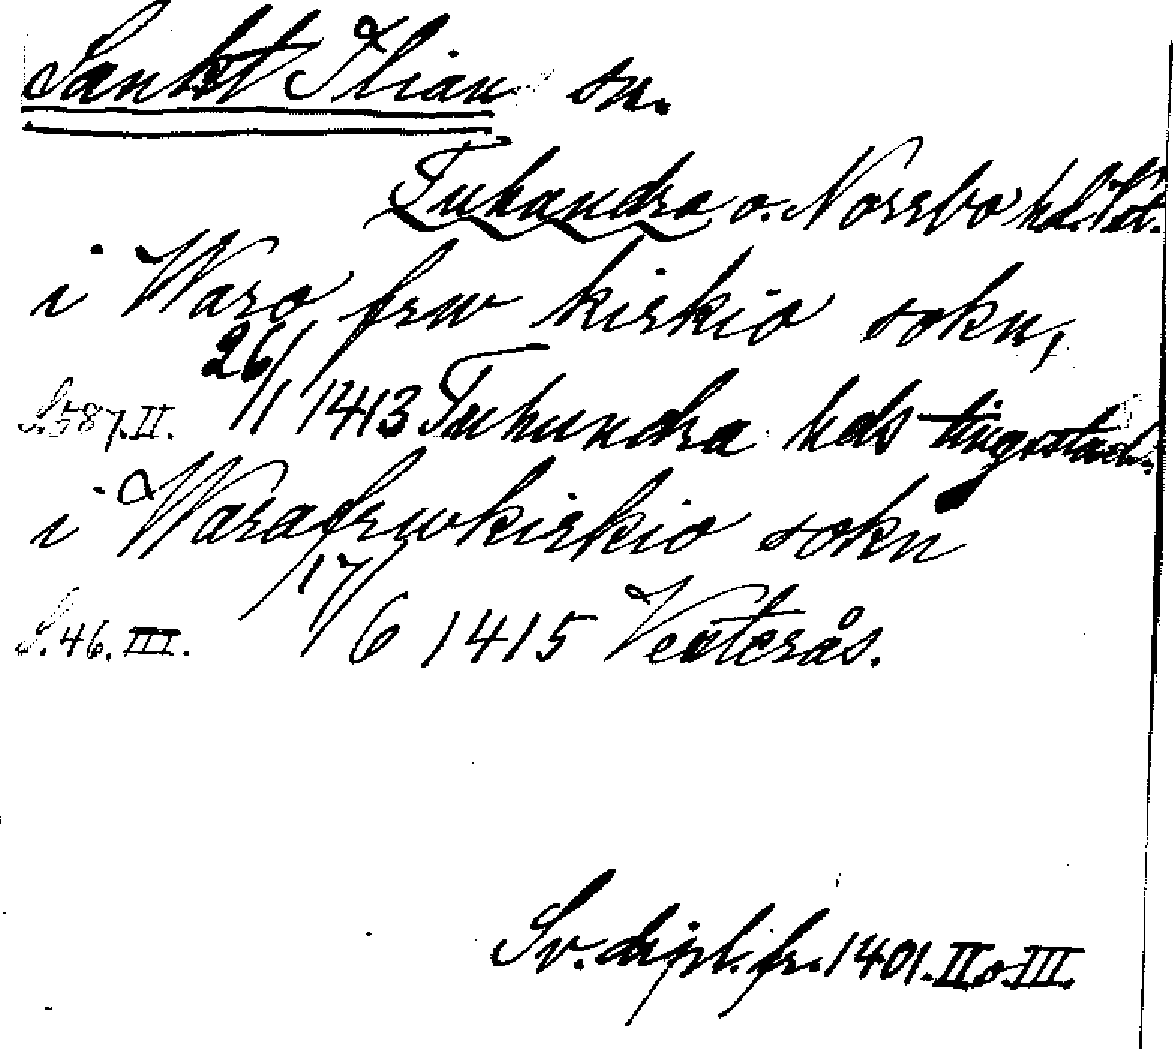 Sankt Ilian sn.
Tuhundra o. Norrbo hd. Vst.
i Waro frw kirkio sokn,
S. 587. II. 26/1 1413 Tuhundra hds tingsstad.
i Warafrwkirkio sokn
S. 46. III. 17/6 1415 Vesterås.
Sv. dipl. fr. 1401. II o. III.